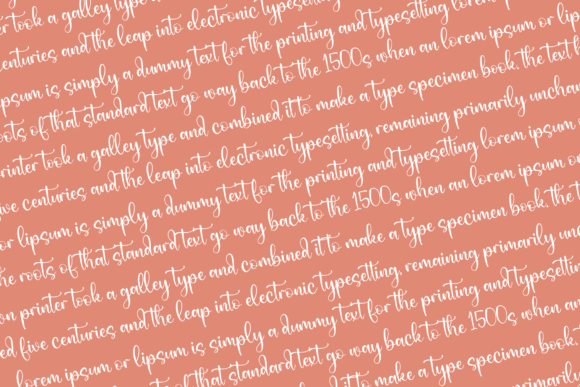 took a galley type
centuries and the leap into electronic typesetting
ipsum is simply a dummy text for the printing and typesetting lorem
roots of that standard text go way back to the 1500s when an lorem ipsum or lip
printer took a galley type and combined it to make a type specimen book. the text
five centuries and the leap into electronic typesetting. remaining primarily unchan
or lipsum is simply a dummy text for the printing and typesetting lorem ipsum
the roots of that standard text go way back to the 1500s when an lorem ipsum or
on printer took a galley type and combined it to make a type specimen book. the text
ed five centuries and the leap into electronic typesetting. remaining primarily unch
lorem ipsum or lipsum is simply a dummy text for the printing and typesetting
the roots of that standard text go way back to the 1500s when an
it to make a type specimen book.
primarily